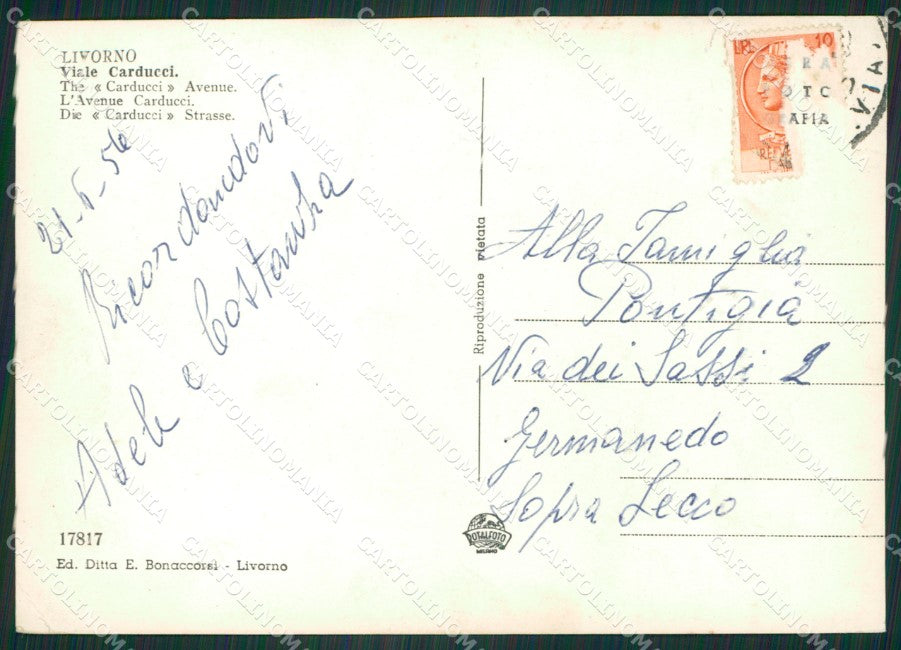 LIVORNO
Viale Carducci.
The « Carducci » Avenue.
L'Avenue Carducci.
Die « Carducci » Strasse.
21-5-56
Ricordandovi
Adele e Costanza
17817
Ed. Ditta E. Bonaccorsi - Livorno
Riproduzione vietata
ROTALFOTO
MILANO
LIRE 10
VIA
Alla Famiglia
Pontigia
Via dei Sassi 2
Germanedo
Sopra Lecco
CARTOLINOMANIA